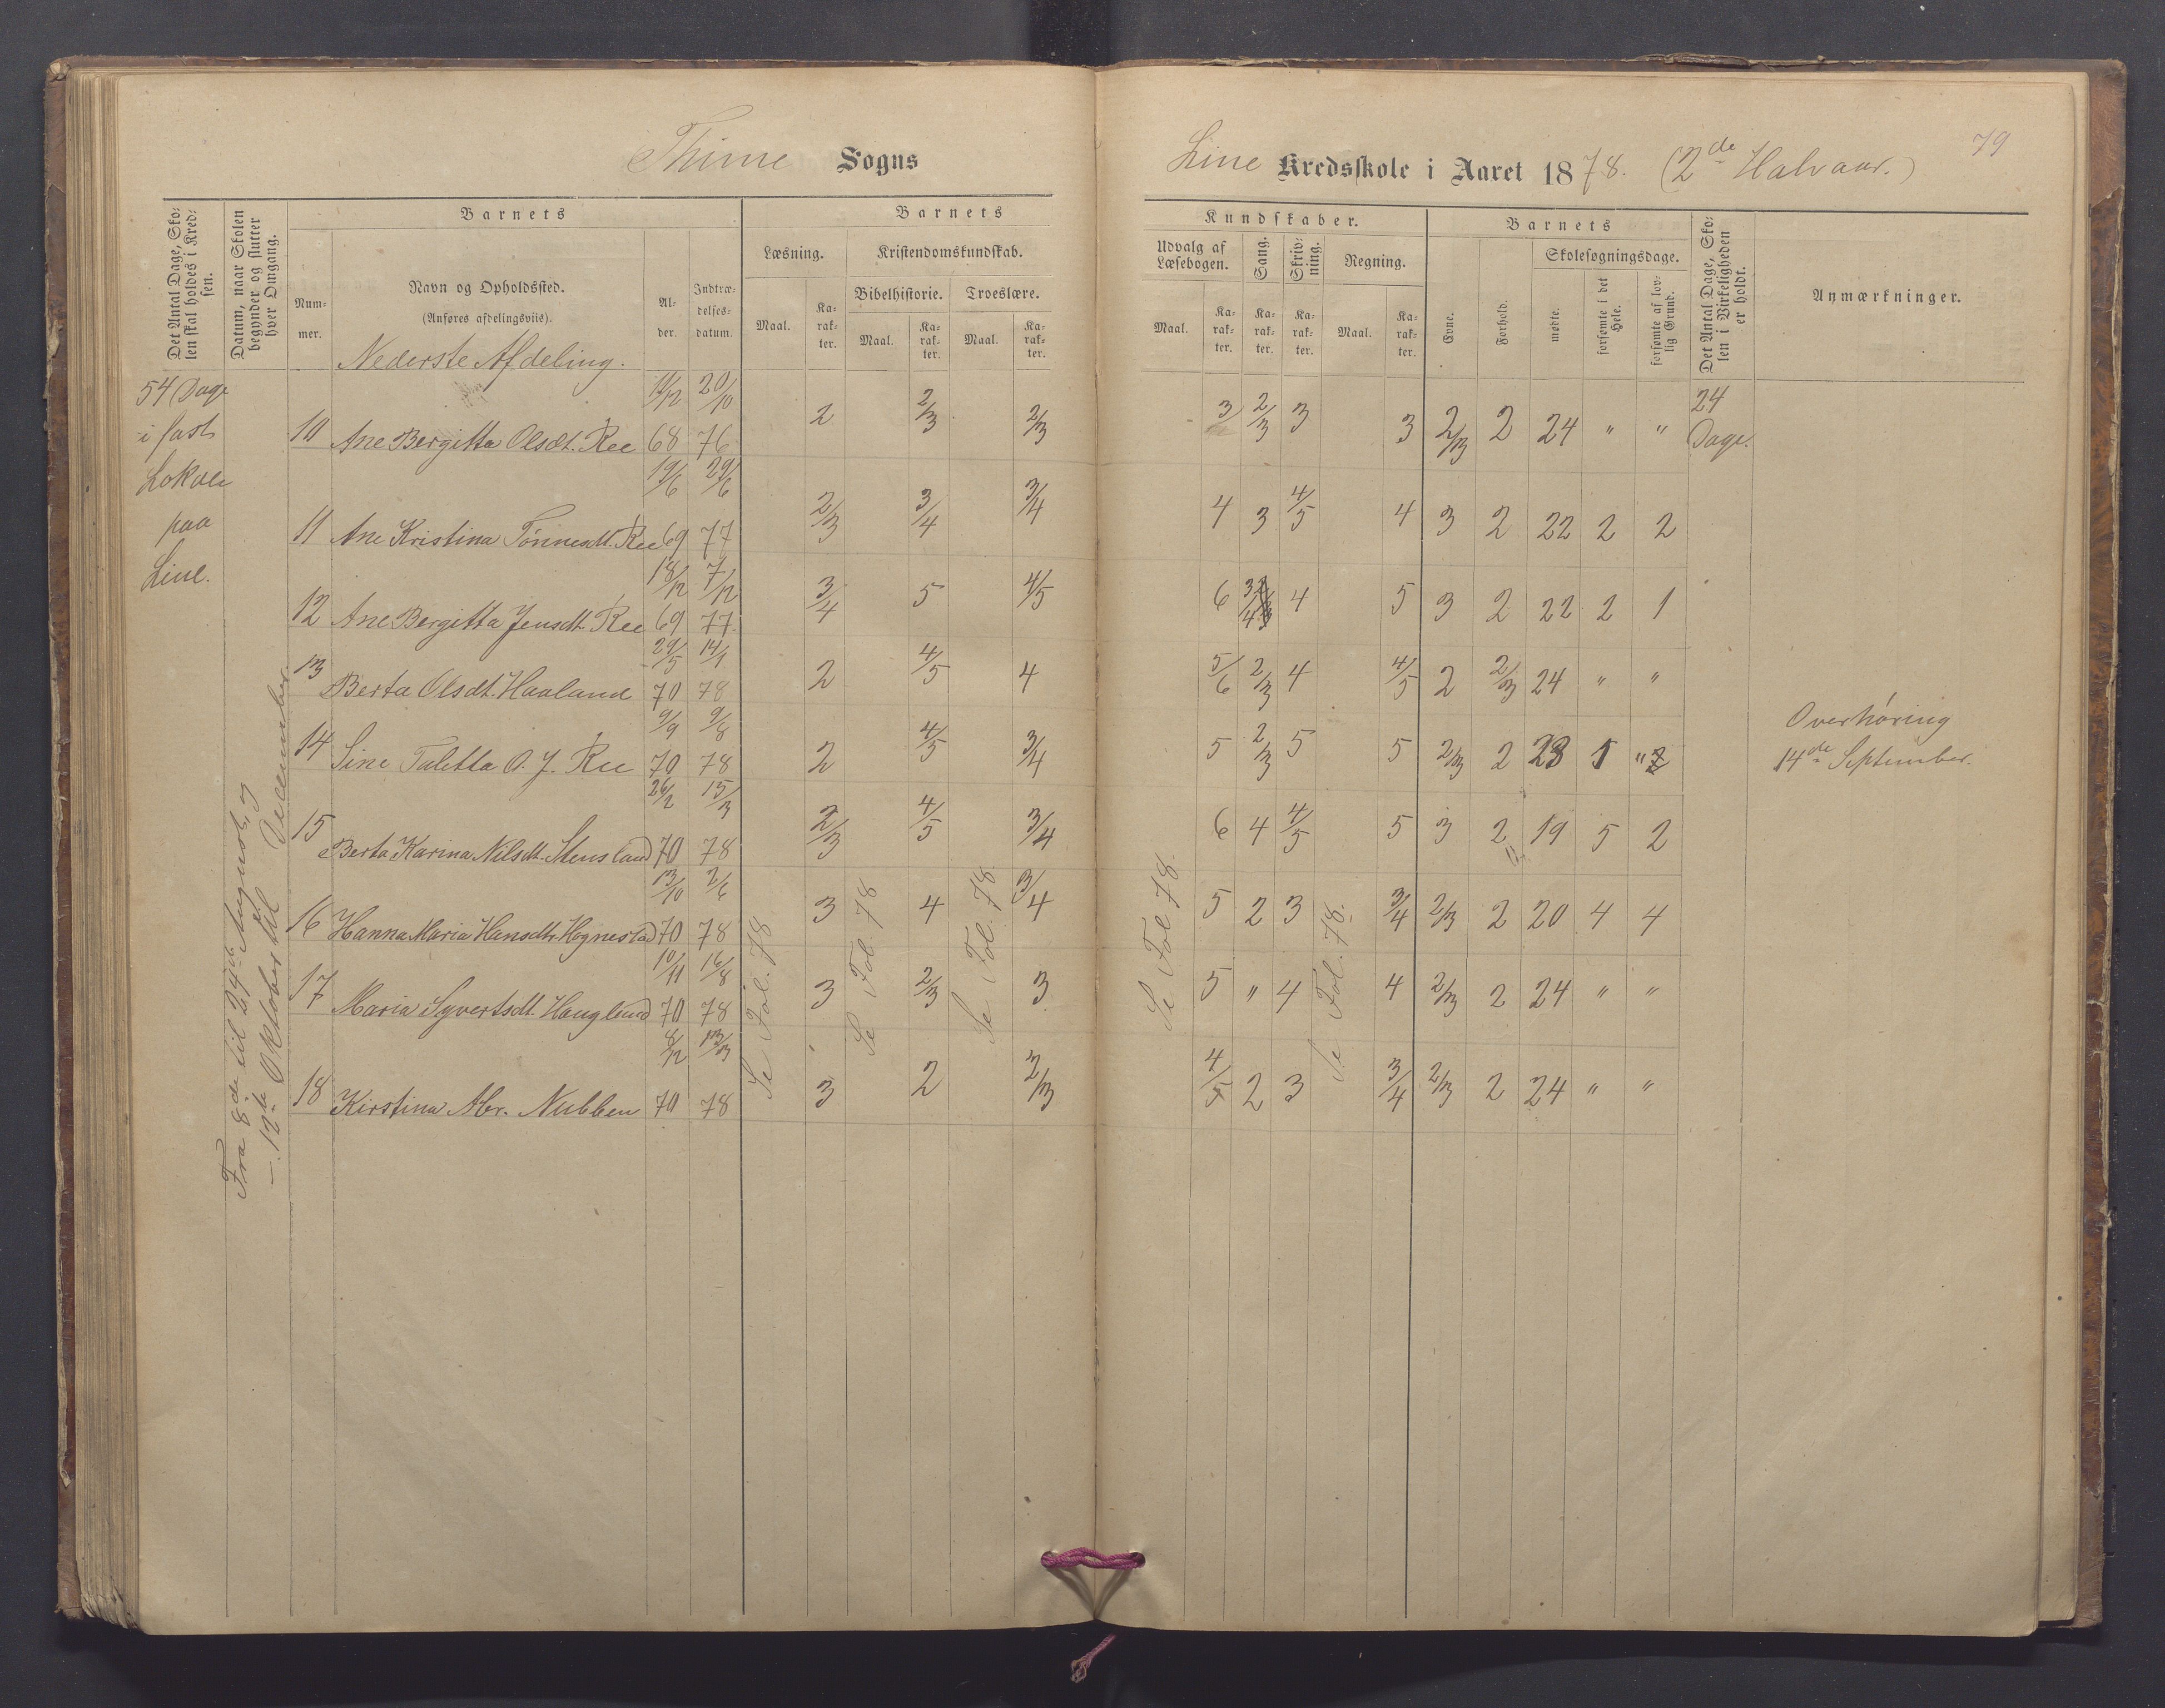 Thime Sogns
Line Kredsskole i Aaret 1878. (2de Halvaar.)
79
Det Antal Dage, Skolen skal holdes i Kredsen.
Datum, naar Skolen begynder og slutter hver Omgang.
Barnets
Nummer.
Navn og Opholdssted.
(Anføres afdelingsviis).
Nederste Afdeling.
Alder.
Indtrædelsesdatum.
Barnets
Læsning.
Kristendomskundskab.
Bibelhistorie.
Troeslære.
Maal.
Karakter.
Maal.
Karakter.
Maal.
Karakter.
Kundskaber.
Udvalg af Læsebogen.
Sang.
Skrivning.
Regning.
Maal.
Karakter.
Karakter.
Karakter.
Maal.
Karakter.
Barnets
Evne.
Forhold.
Skolesøgningsdage.
mødte.
forsømte i det Hele.
forsømte af lovlig Grund.
Det Antal Dage, Skolen i Virkeligheden er holdt.
Anmærkninger.
54 Dage
i fast
Lokale
paa
Line.
Fra 8de til 29de August, og
— 12te Oktober til December.
10 Ane Bergitta Olsdt. Ree 11/12 68 20/10 76 2 2/3 2/3 3 2/3 3 3 2/3 2 24 " " 24 Dage.
11 Ane Kristina Tønnesdt. Ree 19/6 69 29/6 77 2/3 3/4 3/4 4 3 4/5 4 3 2 22 2 2
12 Ane Bergitta Jensdt. Ree 18/12 69 7/12 77. 3/4 5 4/5 6 3/4 4 5 3 2 22 2 1
13 Berta Olsdt. Haaland 29/5 70 14/1 78 2 4/5 4 5/6 2/3 4 4/5 2 2/3 24 " "
14 Sine Taletta O. J. Ree 9/9 70 9/8 78 2 4/5 3/4 5 2/3 5 5 2/3 2 23 1 "
Overhøring
14de September.
15 Berta Karina Nilsdt. Stensland 26/2 70 15/3 78 2/3 4/5 3/4 6 4 4/5 5 3 2 19 5 2
16 Hanna Maria Hansdtr Hognestad 13/10 70 2/6 78 3 4 3/4 5 2 3 3/4 2/3 2 20 4 4
17 Maria Syvertsdt. Haugland 10/11 70 16/8 78 3 2/3 3 5 " 4 4 2/3 2 24 " "
18 Kirstina Abr. Nubben 8/12 70 13/3 78 3 2 2/3 4/5 2 3 3/4 2/3 2 24 " "
Se Fol. 78
Se Fol. 78
Se Fol. 78
Se Fol 78.
Se Fol. 78.